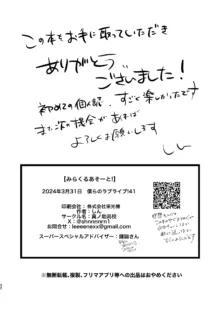 この本をお手に取っていただき
ありがとうございました！
初めての個人誌、すごく楽しかったです
また次の機会があれば
よろしくお願いします
しん
【みらくるあそーと!】
2024年3月31日 僕らのラブライブ!41
印刷会社：株式会社栄光
作者：しん
サークル名：真ノ助高校
お問合せ：leeeenexx@gmail.com
スーパースペシャルアドバイザー：鐘餡さん
※無断転載、複製、フリマアプリ等への出品はおやめください